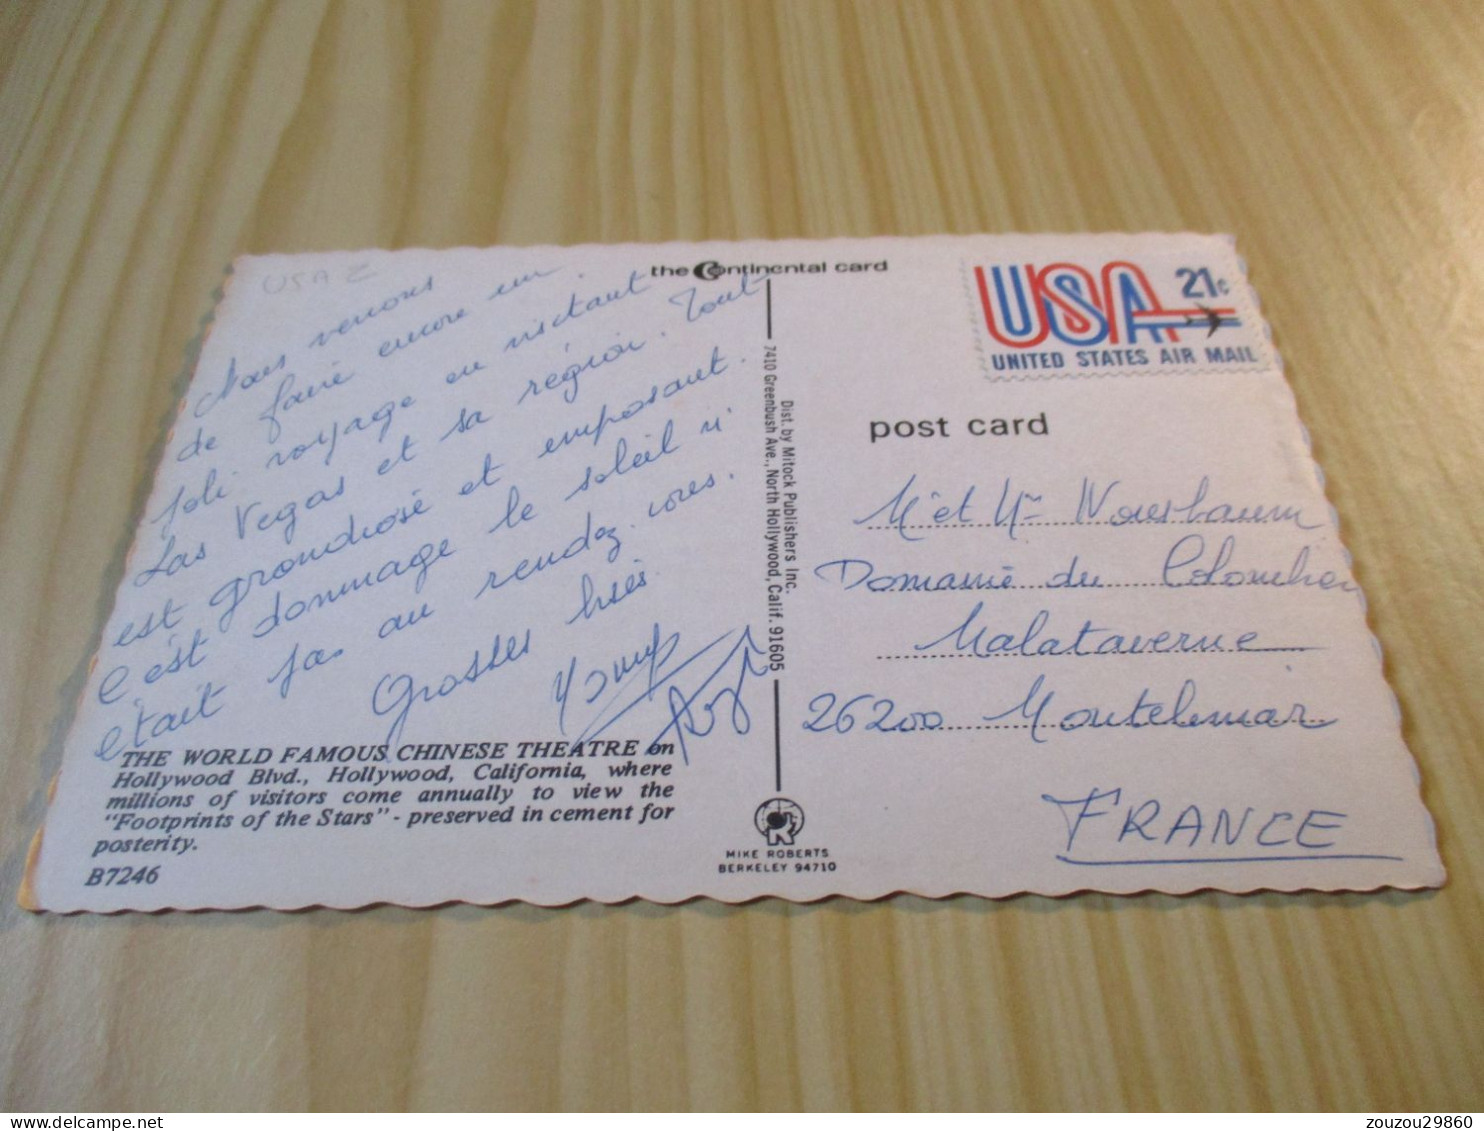 USA Z
the Continental card
Nous venons
de faire encore un
joli voyage en visitant
Las Vegas et sa région. Tout
est grandiose et imposant.
C'est dommage le soleil n'
était pas au rendez-vous.
Grosses bises
THE WORLD FAMOUS CHINESE THEATRE on
Hollywood Blvd., Hollywood, California, where
millions of visitors come annually to view the
"Footprints of the Stars" - preserved in cement for
posterity.
B7246
Dist. by Mitock Publishers Inc.
7410 Greenbush Ave., North Hollywood, Calif. 91605
MIKE ROBERTS
BERKELEY 94710
USA 21c
UNITED STATES AIR MAIL
post card
Mr et Mme
Domaine du
Malataverne
26200 Montelimar
FRANCE
zouzou29860